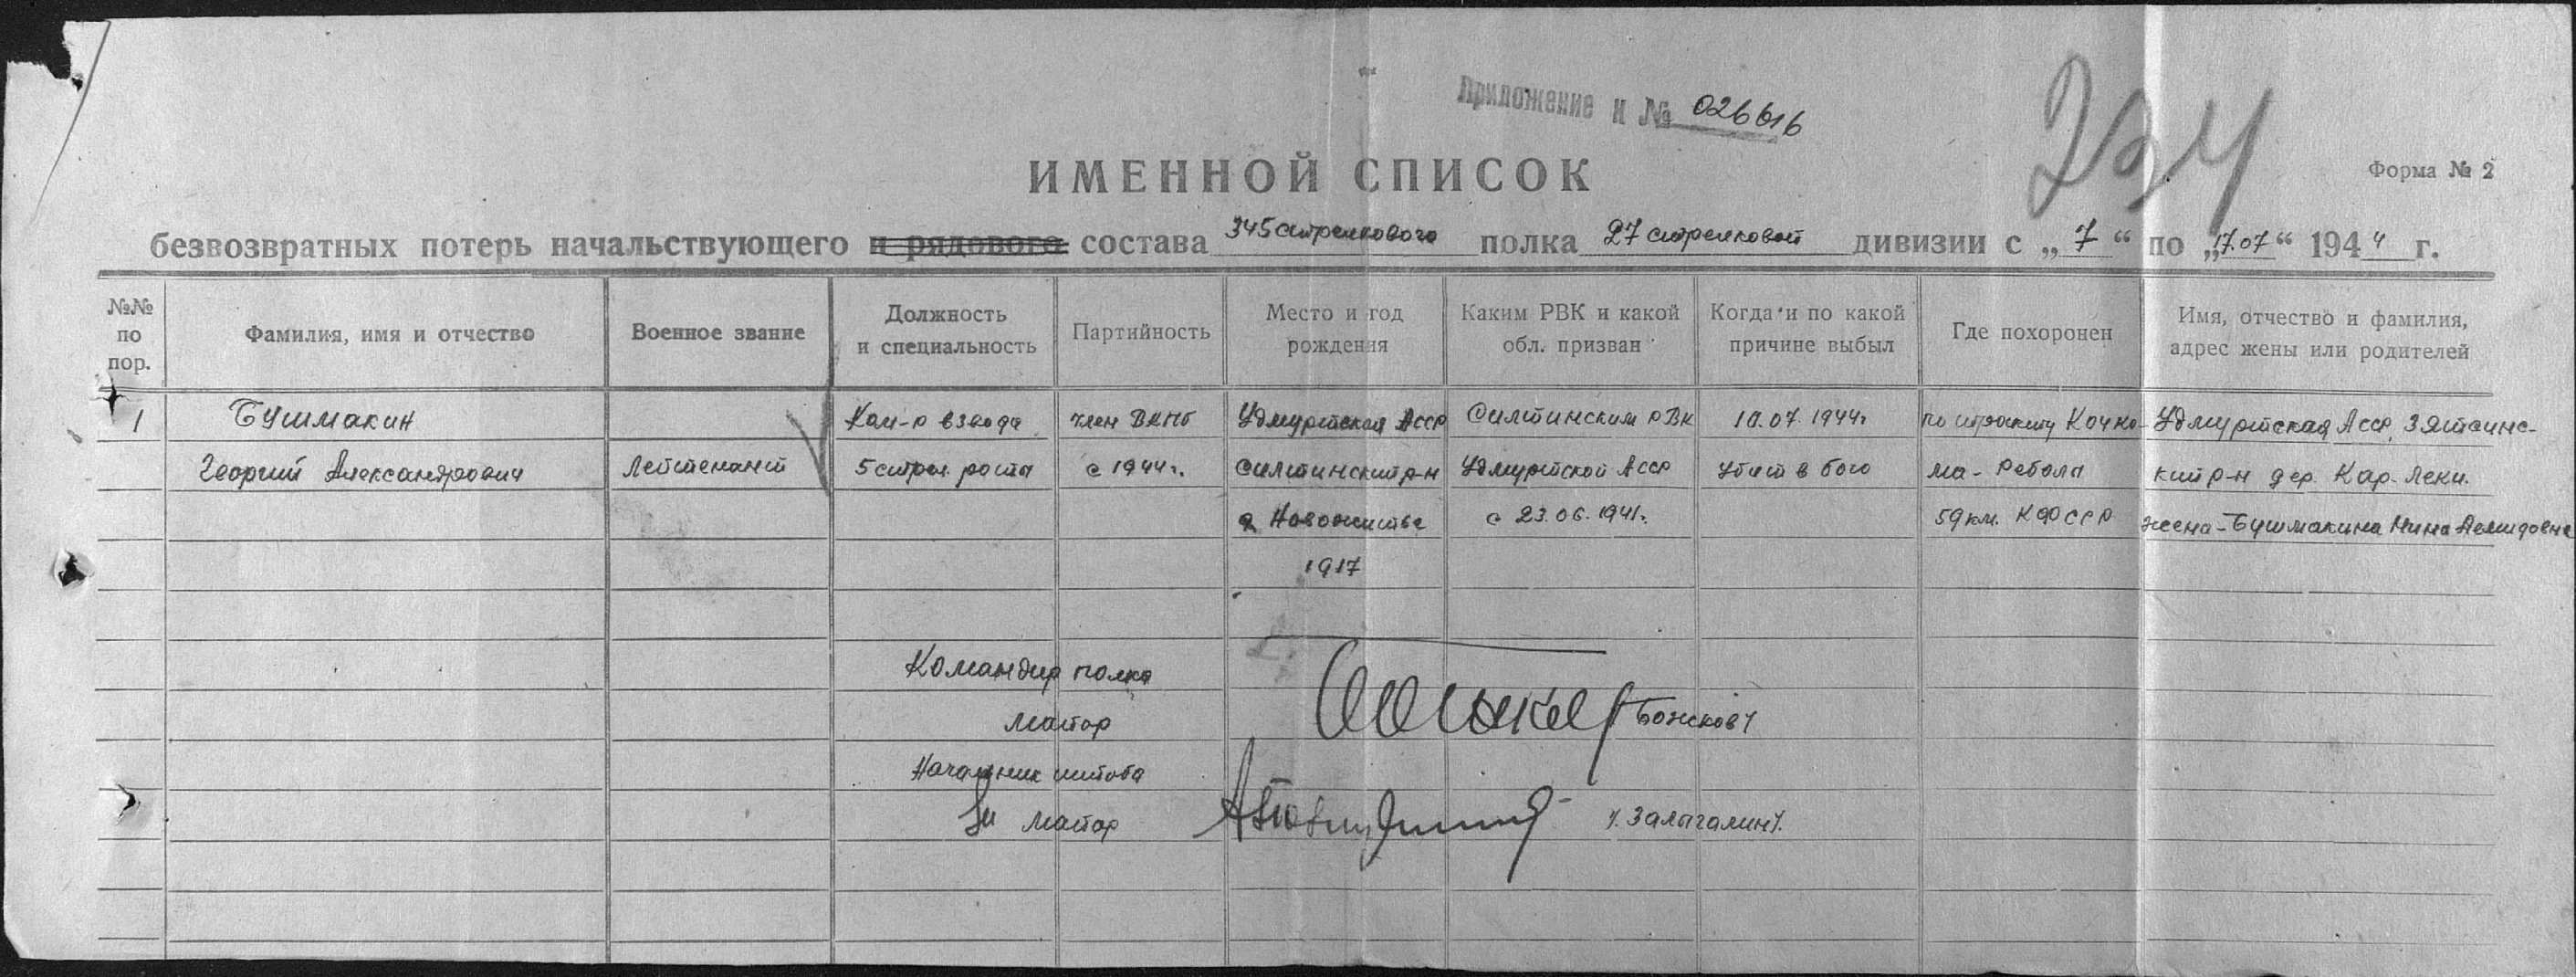 Приложение к № 026616
224
ИМЕННОЙ СПИСОК
Форма № 2
безвозвратных потерь начальствующего и рядового состава 345 стрелкового полка 27 стрелковой дивизии с „ 7 “ по „17.07“ 1944 г.
№№ по пор.
Фамилия, имя и отчество
Военное звание
Должность и специальность
Партийность
Место и год рождения
Каким РВК и какой обл. призван
Когда и по какой причине выбыл
Где похоронен
Имя, отчество и фамилия, адрес жены или родителей
1 Бушмакин Ком-р взвода член ВКПб Удмуртская Асср Силтинским РВК 10.07.1944г по тракту Кочко- Удмуртская Асср, Зятсинс-
Георгий Александрович Лейтенант 5 стрел. рота с 1944г. Силтинский р-н Удмуртской Асср убит в бою ма - Реболы кий р-н дер. Кар-Леки.
д Новожитье с 23.06.1941г. 59 км. КФССР жена - Бушмакина Нина Демидовна
1917
Командир полка
майор Божков
Начальник штаба
майор